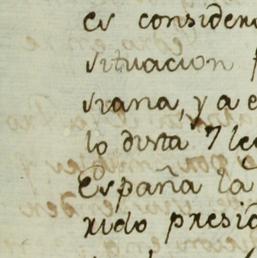 es consider
situacion
siana, y a e
lo dista 7 le
España la
rido presid